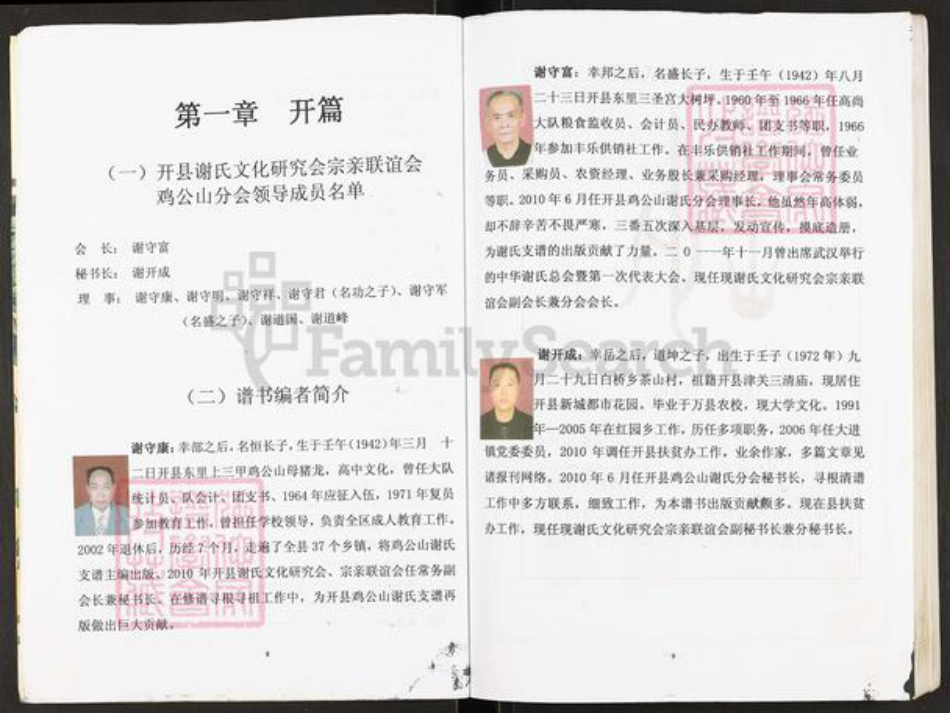 第一章 开篇
（一）开县谢氏文化研究会宗亲联谊会
鸡公山分会领导成员名单
会 长：谢守富
秘书长：谢开成
理 事：谢守康、谢守明、谢守祥、谢守君（名功之子）、谢守军
（名盛之子）、谢道国、谢道峰
（二）谱书编者简介
谢守康：幸部之后，名恒长子，生于壬午（1942）年三月 十
二日开县东里上三甲鸡公山母猪龙，高中文化，曾任大队
统计员、队会计、团支书、1964年应征入伍，1971年复员
参加教育工作，曾担任学校领导，负责全区成人教育工作。
2002年退休后，历经7个月，走遍了全县37个乡镇，将鸡公山谢氏
支谱主编出版。2010年开县谢氏文化研究会、宗亲联谊会任常务副
会长兼秘书长。在修谱寻根寻祖工作中，为开县鸡公山谢氏支谱再
版做出巨大贡献。
8
谢守富：幸邦之后，名盛长子，生于壬午（1942）年八月
二十三日开县东里三圣宫大柯坪。1960年至1966年任高尚
大队粮食监收员、会计员、民办教师、团支书等职，1966
年参加丰乐供销社工作。在丰乐供销社工作期间，曾任业
务员、采购员、农资经理、业务股长兼采购经理，理事会常务委员
等职。2010年6月任开县鸡公山谢氏分会理事长，他虽然年高体弱，
却不辞辛苦不畏严寒，三番五次深入基层，发动宣传，摸底造册，
为谢氏支谱的出版贡献了力量。二0一一年十一月曾出席武汉举行
的中华谢氏总会暨第一次代表大会。现任现谢氏文化研究会宗亲联
谊会副会长兼分会会长。
谢开成：幸岳之后，道坤之子，出生于壬子（1972年）九
月二十九日白桥乡茶山村，祖籍开县津关三清庙，现居住
开县新城都市花园。毕业于万县农校，现大学文化。1991
年—2005年在红园乡工作，历任多项职务，2006年任大进
镇党委委员，2010年调任开县扶贫办工作。业余作家，多篇文章见
诸报刊网络。2010年6月任开县鸡公山谢氏分会秘书长，寻根清谱
工作中多方联系，细致工作，为本谱书出版贡献颇多。现在县扶贫
办工作，现任现谢氏文化研究会宗亲联谊会副秘书长兼分秘书长。
9
FamilySearch